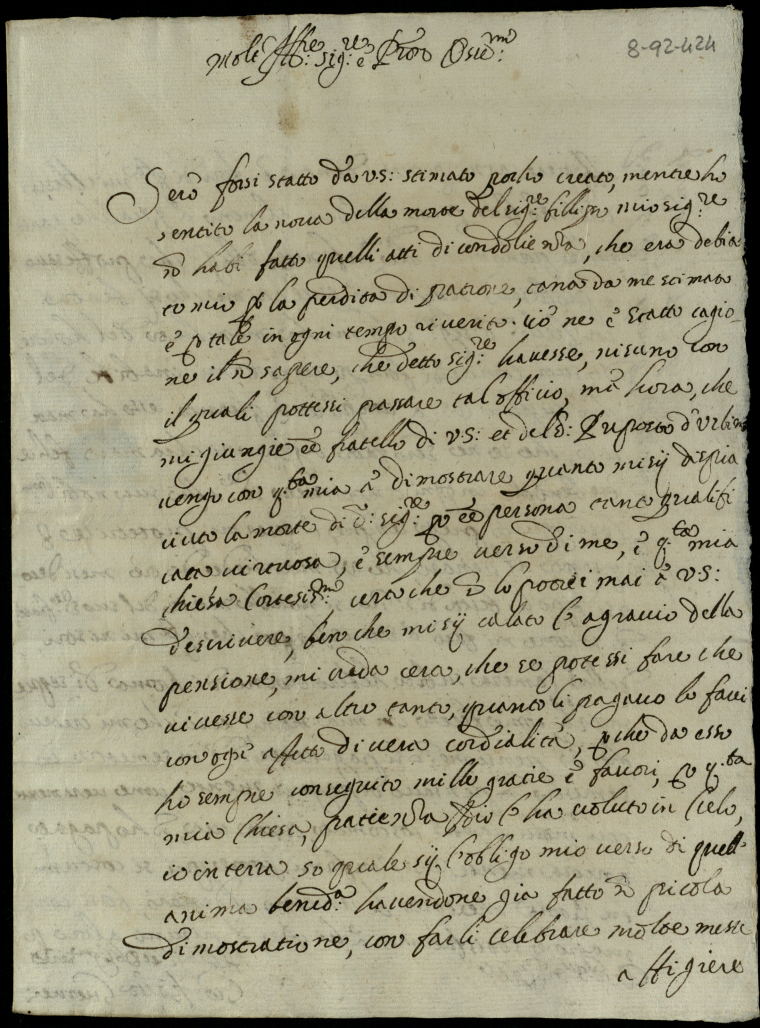 8-92-424
Molt Ill:re sig:re e Pron Oss:mo
Sero forsi statto da VS: stimato pocho creato, mentre ho
sentito la nova della morte del sig:re fillipo mio sig:re
nõ habi fatto quelli atti di condolienza, che era debia
to mio p la perdita di patrone, tanto da me stimato
è p tale in ogni tempo riverito. ciò ne è statto cagio-
ne il nõ sapere, che detto sig:re havesse, nisuno con
il quali pottessi passare tal officio, mà hora, che
mi giungie eẽ fratello di VS: et del S: Preposto d'Urbino
vengo con q:ta mia à dimostrare quanto mi sij dispia
ciuto la morte di d: sig:re p eẽ persona tanto qualifi
cata virtuosa, è sempre verso di me, è q:ta mia
chiesa Cortesiss:mo, certo che nõ lo potrei mai à VS:
descrivere, ben che mi sij calato l'agravio della
pensione, mi creda certo, che se potessi fare che
vivesse con altro tanto, quanto li pagavo lo farei
con ogni affetto di vera cordialità, p che da esso
ho sempre conseguito mille gratie è favori, p q:ta
mia Chiesa, patienza Iddio l'ha voluto in Cielo,
io in terra so quale sij l'obligo mio verso di quell
anima bened:a havendone già fatto nõ picola
dimostratione, con farli celebrare molte messe
affigiere